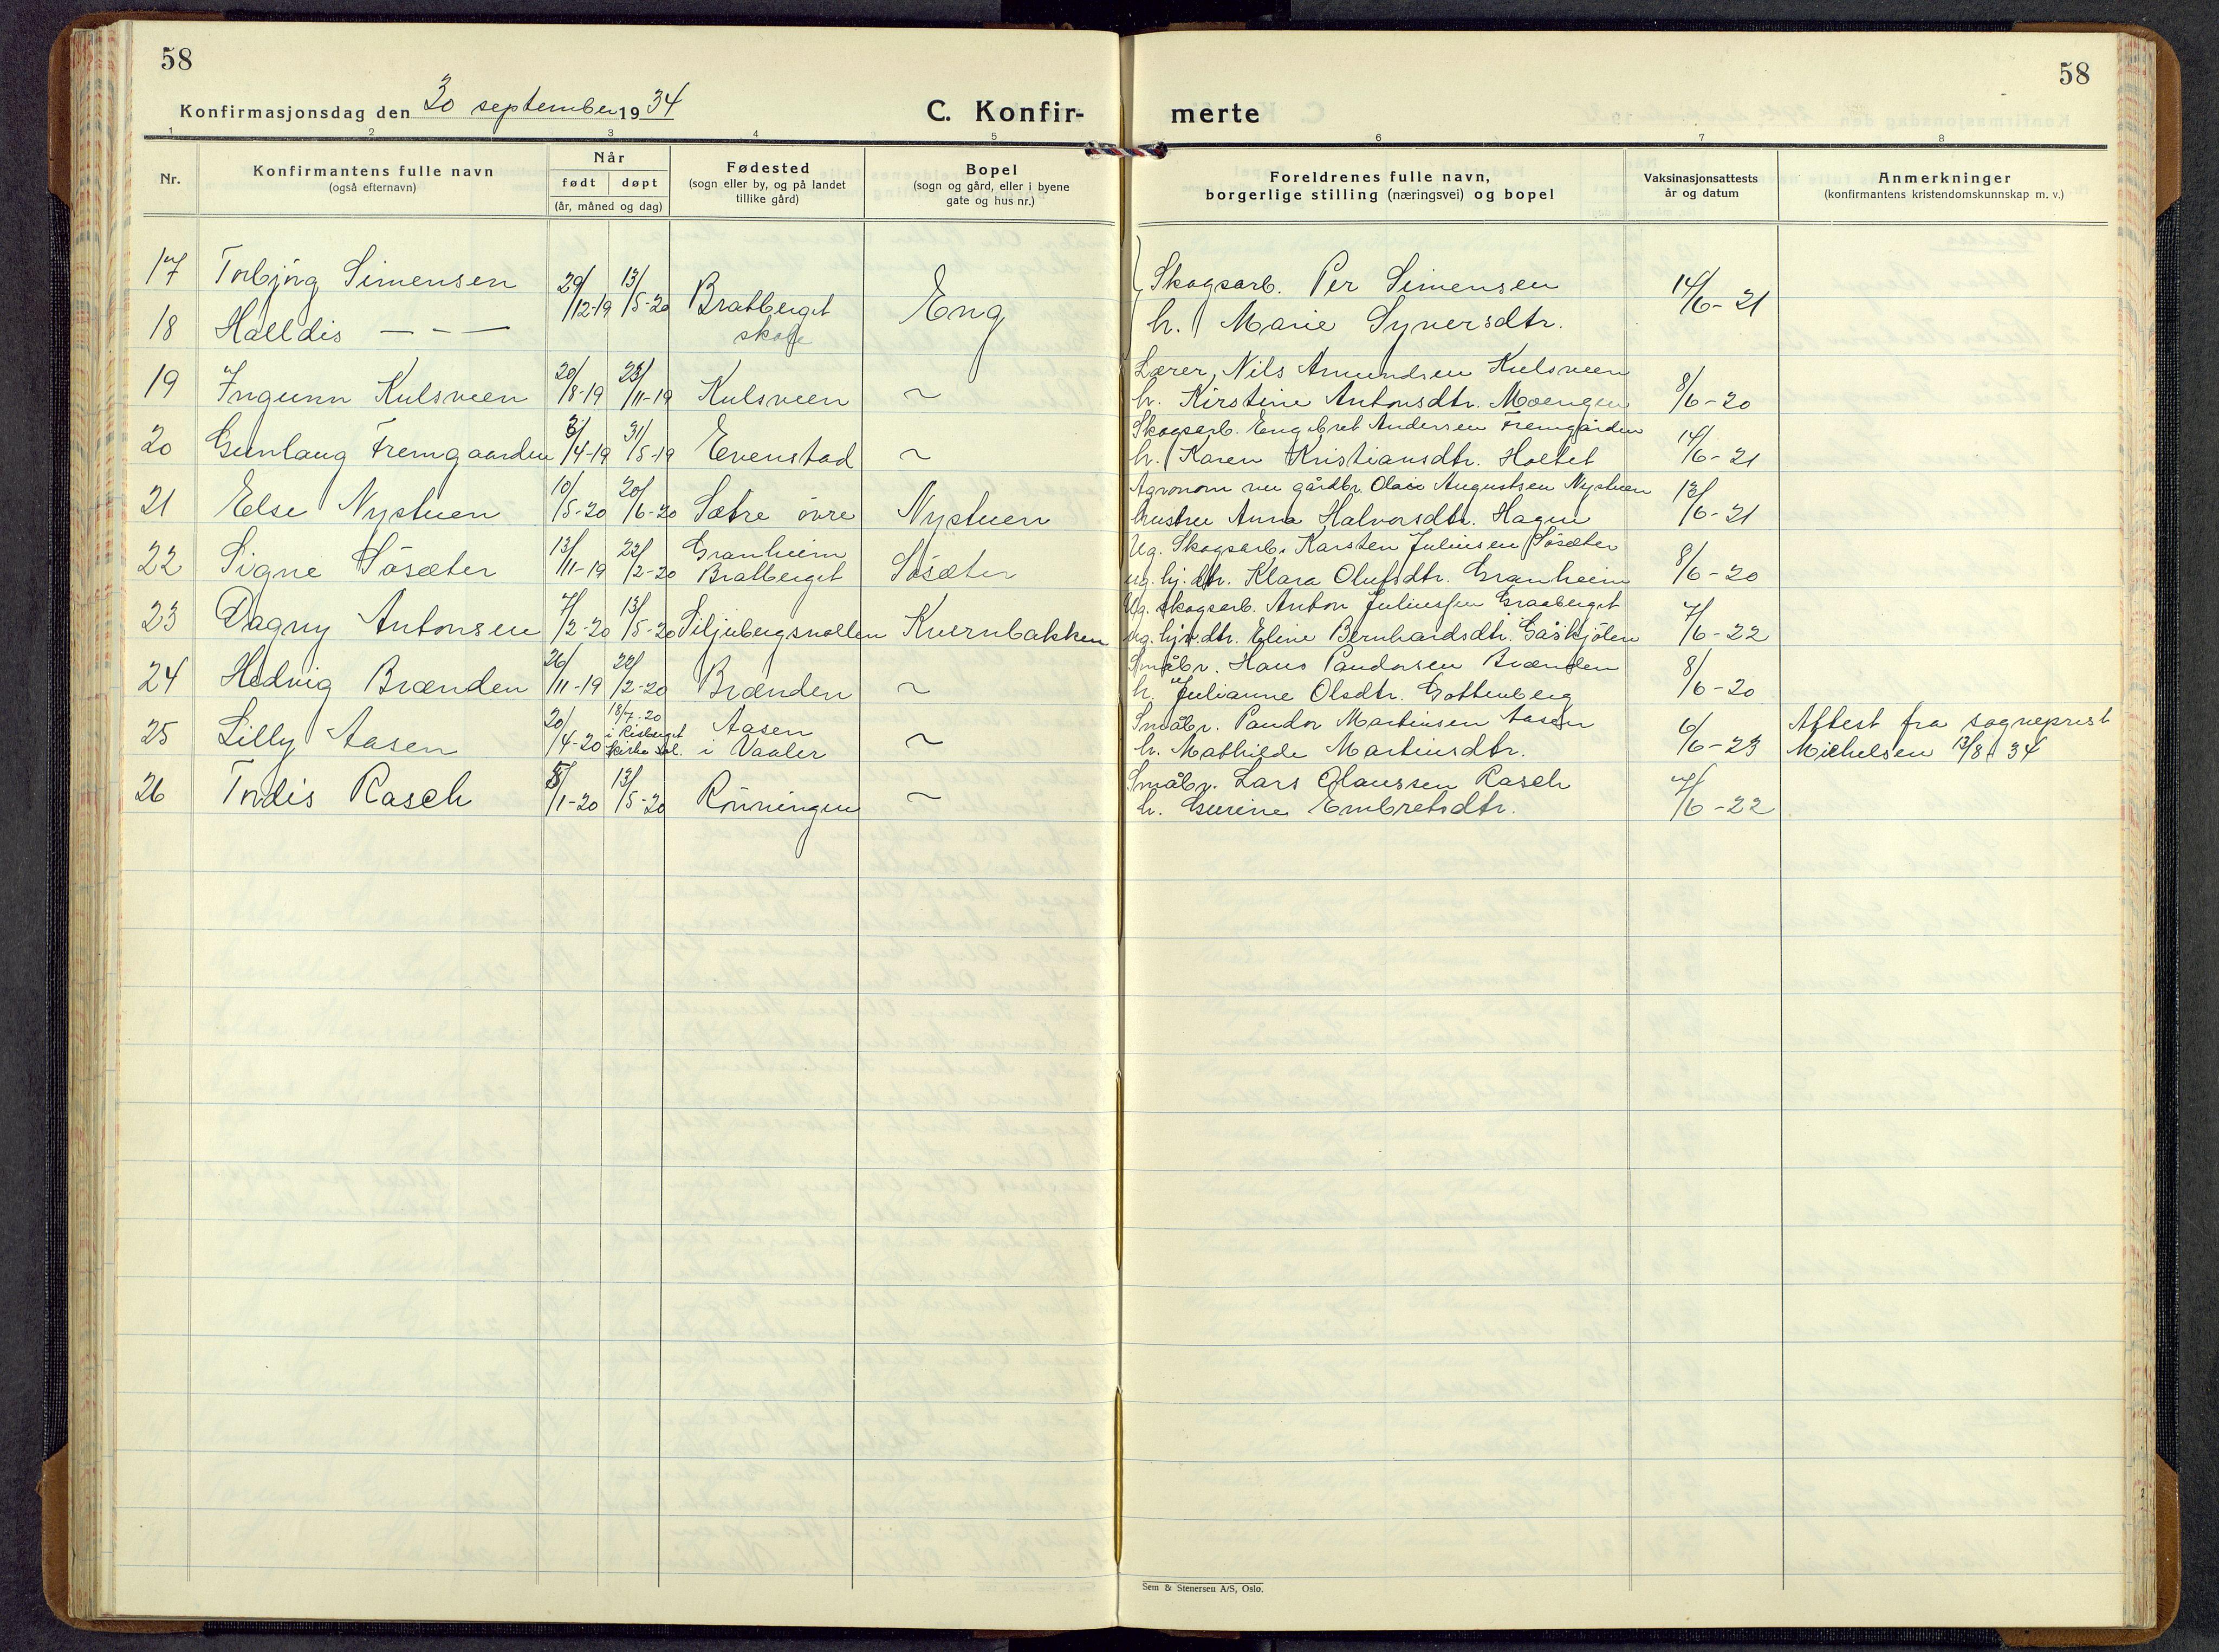 58
58
Konfirmasjonsdag den 30 september 1934
C. Konfir-
merte
1 2 3 4 5 6 7 8
Nr.
Konfirmantens fulle navn
(også efternavn)
Når
født døpt
(år, måned og dag)
Fødested
(sogn eller by, og på landet
tillike gård)
Bopel
(sogn og gård, eller i byene
gate og hus nr.)
Foreldrenes fulle navn,
borgerlige stilling (næringsvei) og bopel
Vaksinasjonsattests
år og datum
Anmerkninger
(konfirmantens kristendomskunnskap m. v.)
17 Torbjörg Simensen 29/12-19 13/5-20 Bratberget Eng Skogsarb. Per Simensen 14/6-21
18 Halldis — — — skole h. Marie Syversdtr.
19 Ingunn Kulsveen 20/8-19 23/11-19 Kulsveen ~ Lærer, Nils Amundsen Kulsveen
h. Kirstine Antonsdtr. Moengen 8/6-20
20 Gunlaug Fremgaarden 3/4-19 31/5-19 Evenstad ~ Skogsarb. Engebret Andersen Fremgården
h. Karen Kristiansdtr. Holtet 14/6-21
21 Else Nystuen 10/5-20 20/6-20 Sætre övre Nystuen Agronom nu gårdbr. Olaus Augustsen Nystuen
hustru Anna Halvorsdtr. Hagen 13/6-21
22 Signe Søsæter 13/11-19 22/2-20 Granheim Søsæter Ug. Skogsarb. Karsten Juliussen Søsæter
Bratberget ug. hj. dtr. Klara Olufsdtr. Granheim 8/6-20
23 Dagny Antonsen 7/2-20 13/5-20 Siljubergsvollen Kvernbakken Ug. skogsarb. Anton Juliussen Graaberget
ug. hj. dtr. Eline Bernhardsdtr. Gåskjölen 7/6-22
24 Hedvig Brænden 26/11-19 22/2-20 Brænden ~ Småbr. Hans Pandorsen Brænden
h. Julianne Olsdtr. Gottenberg 8/6-20
25 Lilly Aasen 20/4-20 18/7-20 Aasen ~ Småbr. Pandor Martinsen Aasen 6/6-23 Attest fra sogneprest
i Risberget kirke Sol. i Vaaler h. Mathilde Martinsdtr. Michelsen 13/8-34
26 Tordis Rasch 5/1-20 13/5-20 Rönningen ~ Småbr. Lars Olaussen Rasch
h. Gurine Embretsdtr. 7/6-22
Sem & Stenersen A/S, Oslo.